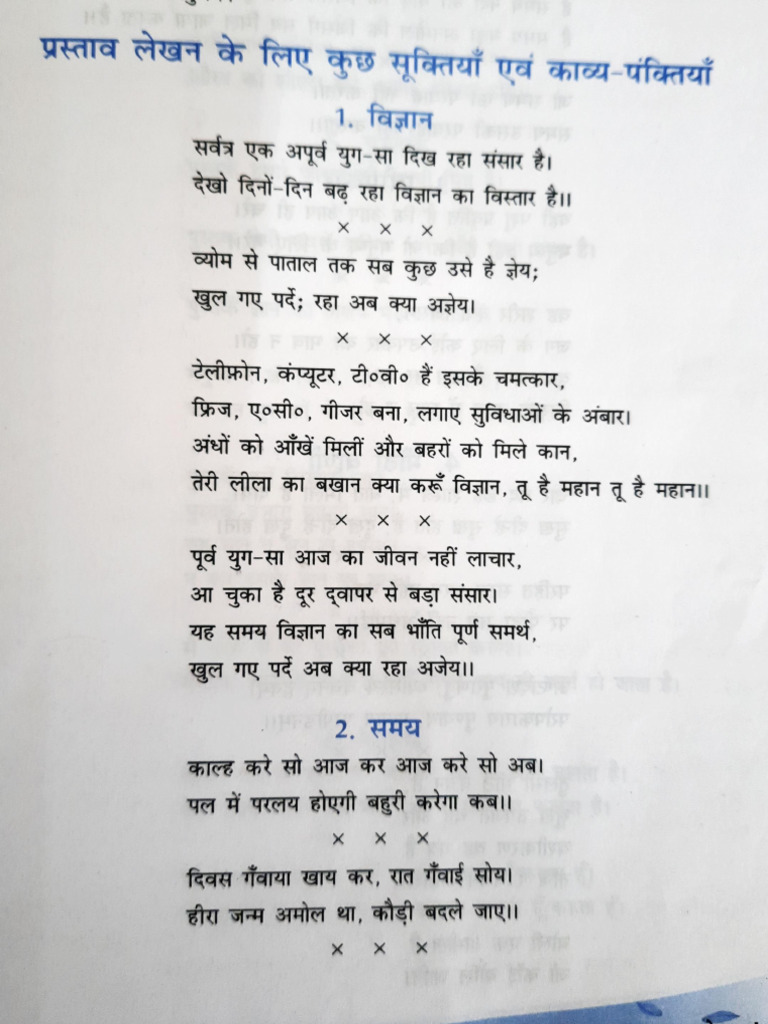 प्रस्ताव लेखन के लिए कुछ सूक्तियाँ एवं काव्य-पंक्तियाँ
1. विज्ञान
सर्वत्र एक अपूर्व युग-सा दिख रहा संसार है।
देखो दिनों-दिन बढ़ रहा विज्ञान का विस्तार है।।
× × ×
व्योम से पाताल तक सब कुछ उसे है ज्ञेय;
खुल गए पर्दे; रहा अब क्या अज्ञेय।
× × ×
टेलीफ़ोन, कंप्यूटर, टी०वी० हैं इसके चमत्कार,
फ्रिज, ए०सी०, गीजर बना, लगाए सुविधाओं के अंबार।
अंधों को आँखें मिलीं और बहरों को मिले कान,
तेरी लीला का बखान क्या करूँ विज्ञान, तू है महान तू है महान।।
× × ×
पूर्व युग-सा आज का जीवन नहीं लाचार,
आ चुका है दूर द्वापर से बड़ा संसार।
यह समय विज्ञान का सब भाँति पूर्ण समर्थ,
खुल गए पर्दे अब क्या रहा अजेय।।
2. समय
काल्ह करे सो आज कर आज करे सो अब।
पल में परलय होएगी बहुरी करेगा कब।।
× × ×
दिवस गँवाया खाय कर, रात गँवाई सोय।
हीरा जन्म अमोल था, कौड़ी बदले जाए।।
× × ×